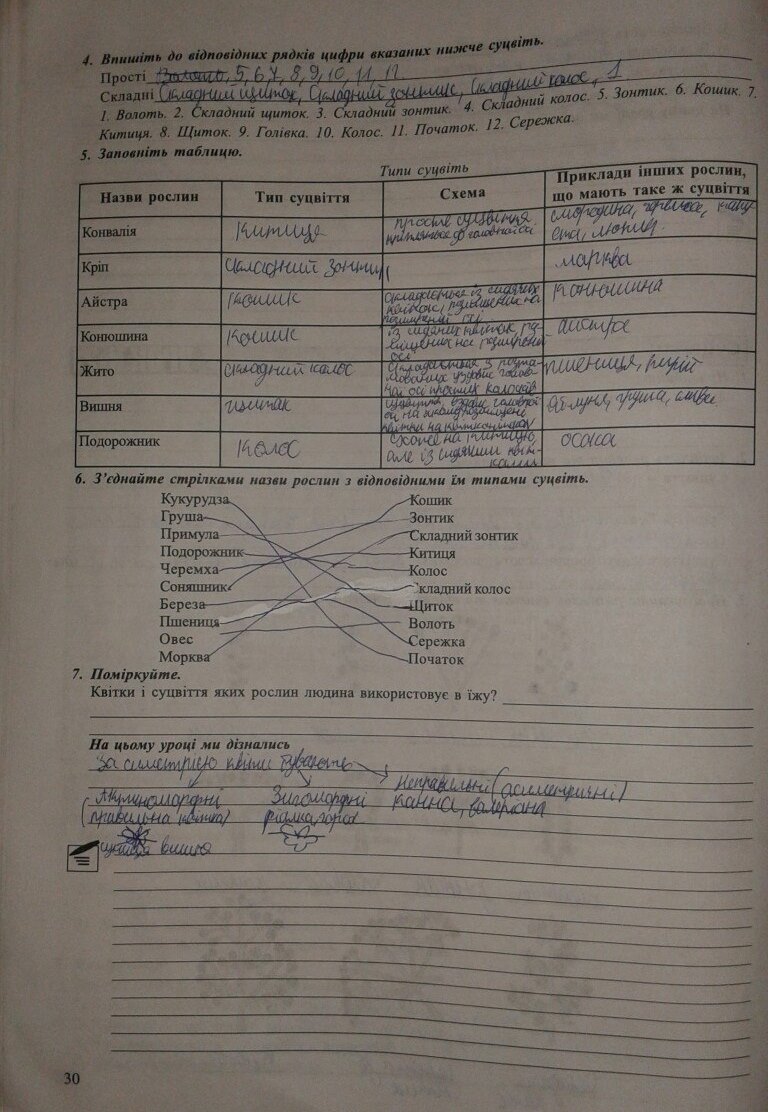 4. Впишіть до відповідних рядків цифри вказаних нижче суцвіть.
Прості Волоть, 5, 6, 7, 8, 9, 10, 11, 12
Складні Складний щиток, Складний зонтик, Складний колос, 1
1. Волоть. 2. Складний щиток. 3. Складний зонтик. 4. Складний колос. 5. Зонтик. 6. Кошик. 7.
Китиця. 8. Щиток. 9. Голівка. 10. Колос. 11. Початок. 12. Сережка.
5. Заповніть таблицю.
Типи суцвіть
Назви рослин Тип суцвіття Схема Приклади інших рослин, що мають таке ж суцвіття
Конвалія китиця просте суцвіття смородина, черемха, люпин
Кріп складний зонтик морква
Айстра кошик складається із сидячих квіток, розміщених на розширеній осі конюшина
Конюшина кошик із сидячих квіток, розміщених на розширеній осі айстра
Жито складний колос складається з уздовж головної осі простих колосків пшениця, пирій
Вишня щиток суцвіття, вздовж головної осі на якому розміщені квітки на яблуня, груша, слива
Подорожник колос схоже на китицю, але із сидячими осока
6. З'єднайте стрілками назви рослин з відповідними їм типами суцвіть.
Кукурудза Кошик
Груша Зонтик
Примула Складний зонтик
Подорожник Китиця
Черемха Колос
Соняшник Складний колос
Береза Щиток
Пшениця Волоть
Овес Сережка
Морква Початок
7. Поміркуйте.
Квітки і суцвіття яких рослин людина використовує в їжу?
На цьому уроці ми дізнались
За симетрією квіти бувають
Зигоморфні Неправильні (асиметричні)
(правильна квітка) фіалка, горох канна, валеріана
вишня
30